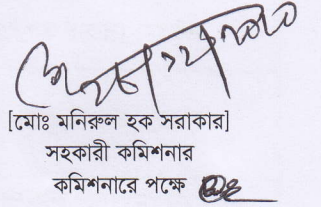 [মোঃ মনিরুল হক সরাকার]
সহকারী কমিশনার
কমিশনারে পক্ষে